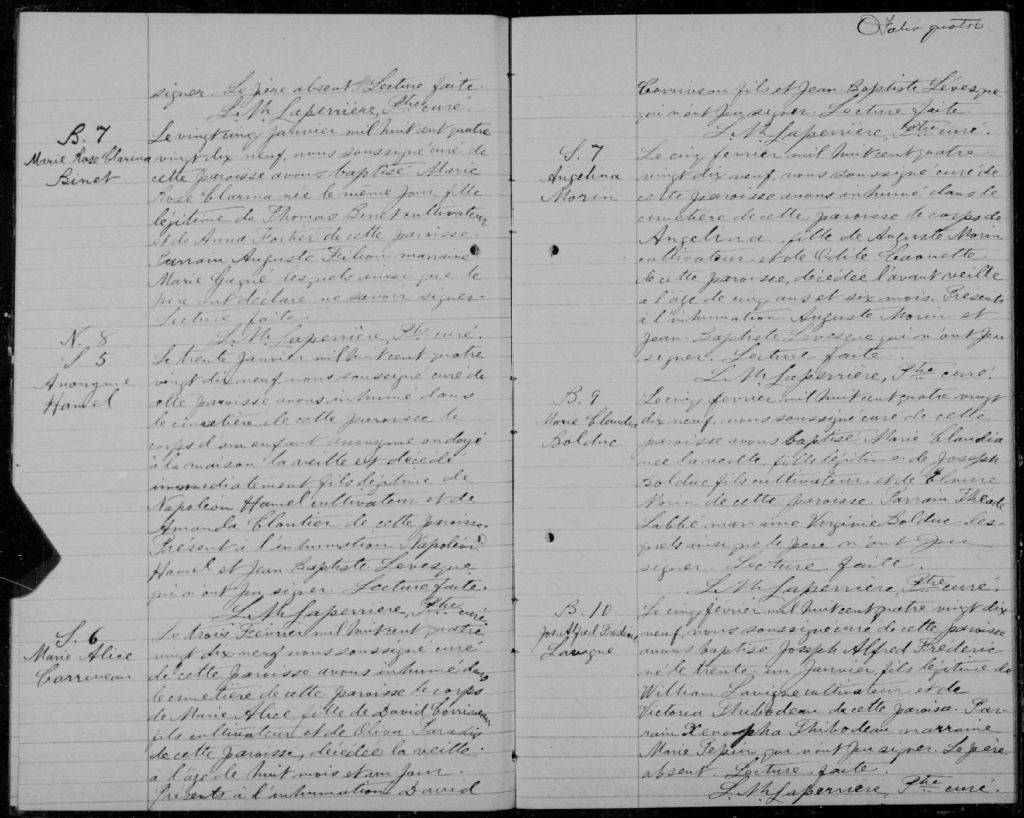 signer. Le père absent. Lecture faite.
L. Nh. Laperrière, Ptre curé.
B. 7
Marie Rose Clarina
Binet
Le vingt cinq Janvier mil huit cent quatre
vingt dix neuf, nous soussigné curé de
cette paroisse avons baptisé Marie
Rose Clarina née le même jour, fille
légitime de Thomas Binet cultivateur
et de Anna Fortier de cette paroisse.
Parrain Auguste Filion marraine
Marie Gagné lesquels ainsi que le
père ont déclaré ne savoir signer.
Lecture faite.
L. Nh. Laperrière, Ptre curé.
N. 8
S. 5
Anonyme
Hamel
Le trente Janvier mil huit cent quatre
vingt dix neuf, nous soussigné curé de
cette paroisse avons inhumé dans
le cimetière de cette paroisse le
corps d'un enfant anonyme ondoyé
à la maison la veille et décédé
immédiatement fils légitime de
Napoléon Hamel cultivateur et de
Amanda Cloutier de cette paroisse.
Présent à l'inhumation Napoléon
Hamel et Jean-Baptiste Levesque
qui n'ont pu signer. Lecture faite.
L. Nh. Laperrière, Ptre curé.
S. 6
Marie Alice
Corriveau
Le trois Février mil huit cent quatre
vingt dix neuf nous soussigné curé
de cette paroisse avons inhumé dans
le cimetière de cette paroisse le corps
de Marie Alice, fille de David Corriveau
fils cultivateur et de Oliva Paradis
de cette paroisse, décédée la veille
à l'âge de huit mois et un jour.
Présents à l'inhumation David
Folio quatre
Corriveau fils et Jean-Baptiste Lévesque
qui n'ont pu signer. Lecture faite
L. Nh. Laperrière, Ptre curé.
S. 7
Angelina
Morin
Le cinq fevrier mil huit cent quatre
vingt dix neuf, nous soussigné curé de
cette paroisse avons inhumé dans le
cimetière de cette paroisse le corps de
Angelina, fille de Auguste Morin
cultivateur et de Odile Caouette
de cette paroisse, décédée l'avant veille
à l'âge de cinq ans et six mois. Présents
à l'inhumation Auguste Morin et
Jean-Baptiste Levesque qui n'ont pu
signer. Lecture faite.
L. Nh. Laperrière, Ptre curé.
B. 9
Marie Claudia
Bolduc
Le cinq fevrier mil huit cent quatre vingt
dix neuf, nous soussigné curé de cette
paroisse avons baptisé Marie Claudia
née la veille, fille légitime de Joseph
Bolduc fils cultivateur et de Elmire
Morin de cette paroisse. Parrain
Labbé marraine Virginie Bolduc les-
quels ainsi que le père n'ont pu
signer Lecture faite.
L. Nh. Laperrière, Ptre curé.
B. 10
Jos. Alfred Frédéric
Lavigne
Le cinq fevrier mil huit cent quatre vingt dix
neuf, nous soussigné curé de cette paroisse
avons baptisé Joseph Alfred Frederic
né le trente un Janvier, fils légitime de
William Lavigne cultivateur et de
Victoria Thibodeau de cette paroisse. Par-
rain Xenopha Thibodeau marraine
Marie Pepin qui n'ont pu signer. Le père
absent. Lecture faite.
L. Nh. Laperrière, Ptre curé.